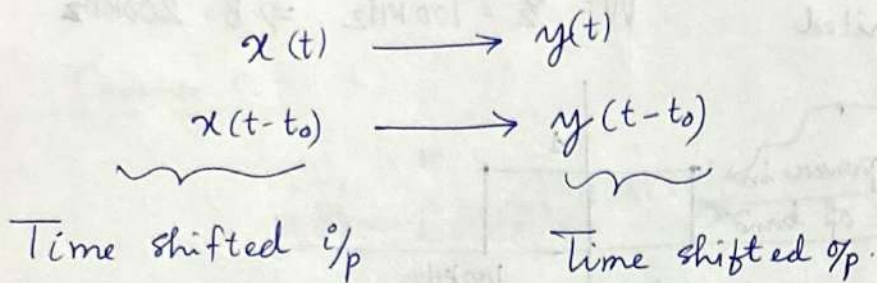 x(t) → y(t)
x(t-t₀) → y(t-t₀)
Time shifted i/p Time shifted o/p.